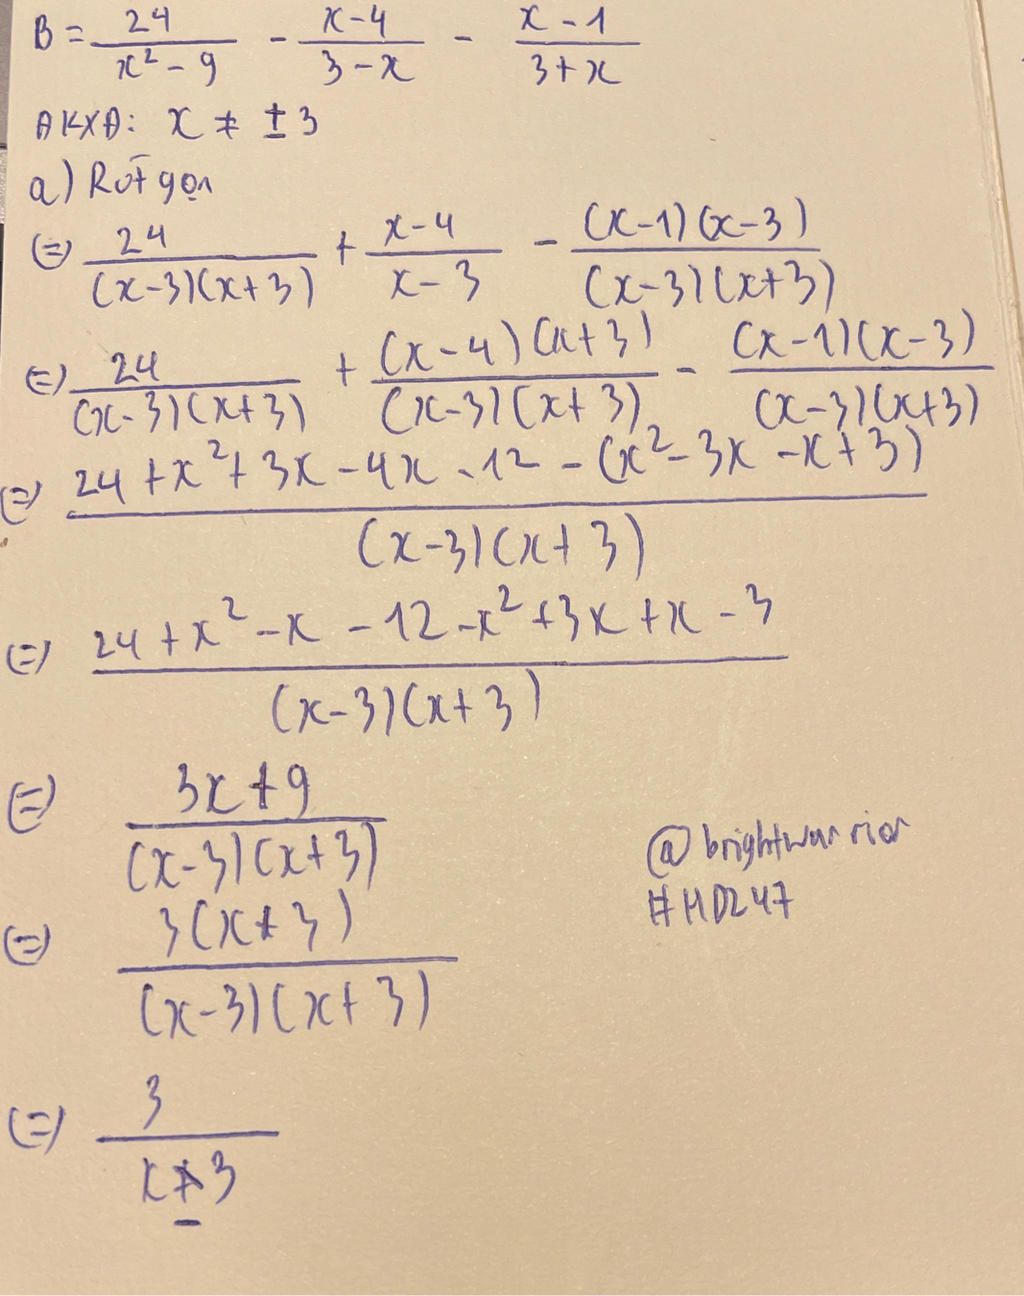 B = 24/(x² - 9) - (x-4)/(3-x) - (x-1)/(3+x)
ĐKXĐ: x ≠ ±3
a) Rút gọn
⇔ 24/((x-3)(x+3)) + (x-4)/(x-3) - ((x-1)(x-3))/((x-3)(x+3))
⇔ 24/((x-3)(x+3)) + ((x-4)(x+3))/((x-3)(x+3)) - ((x-1)(x-3))/((x-3)(x+3))
⇔ (24+x²+3x-4x-12-(x²-3x-x+3))/((x-3)(x+3))
⇔ (24+x²-x-12-x²+3x+x-3)/((x-3)(x+3))
⇔ (3x+9)/((x-3)(x+3))
@brightwarrior
#HD247
⇔ (3(x+3))/((x-3)(x+3))
⇔ 3/(x-3)